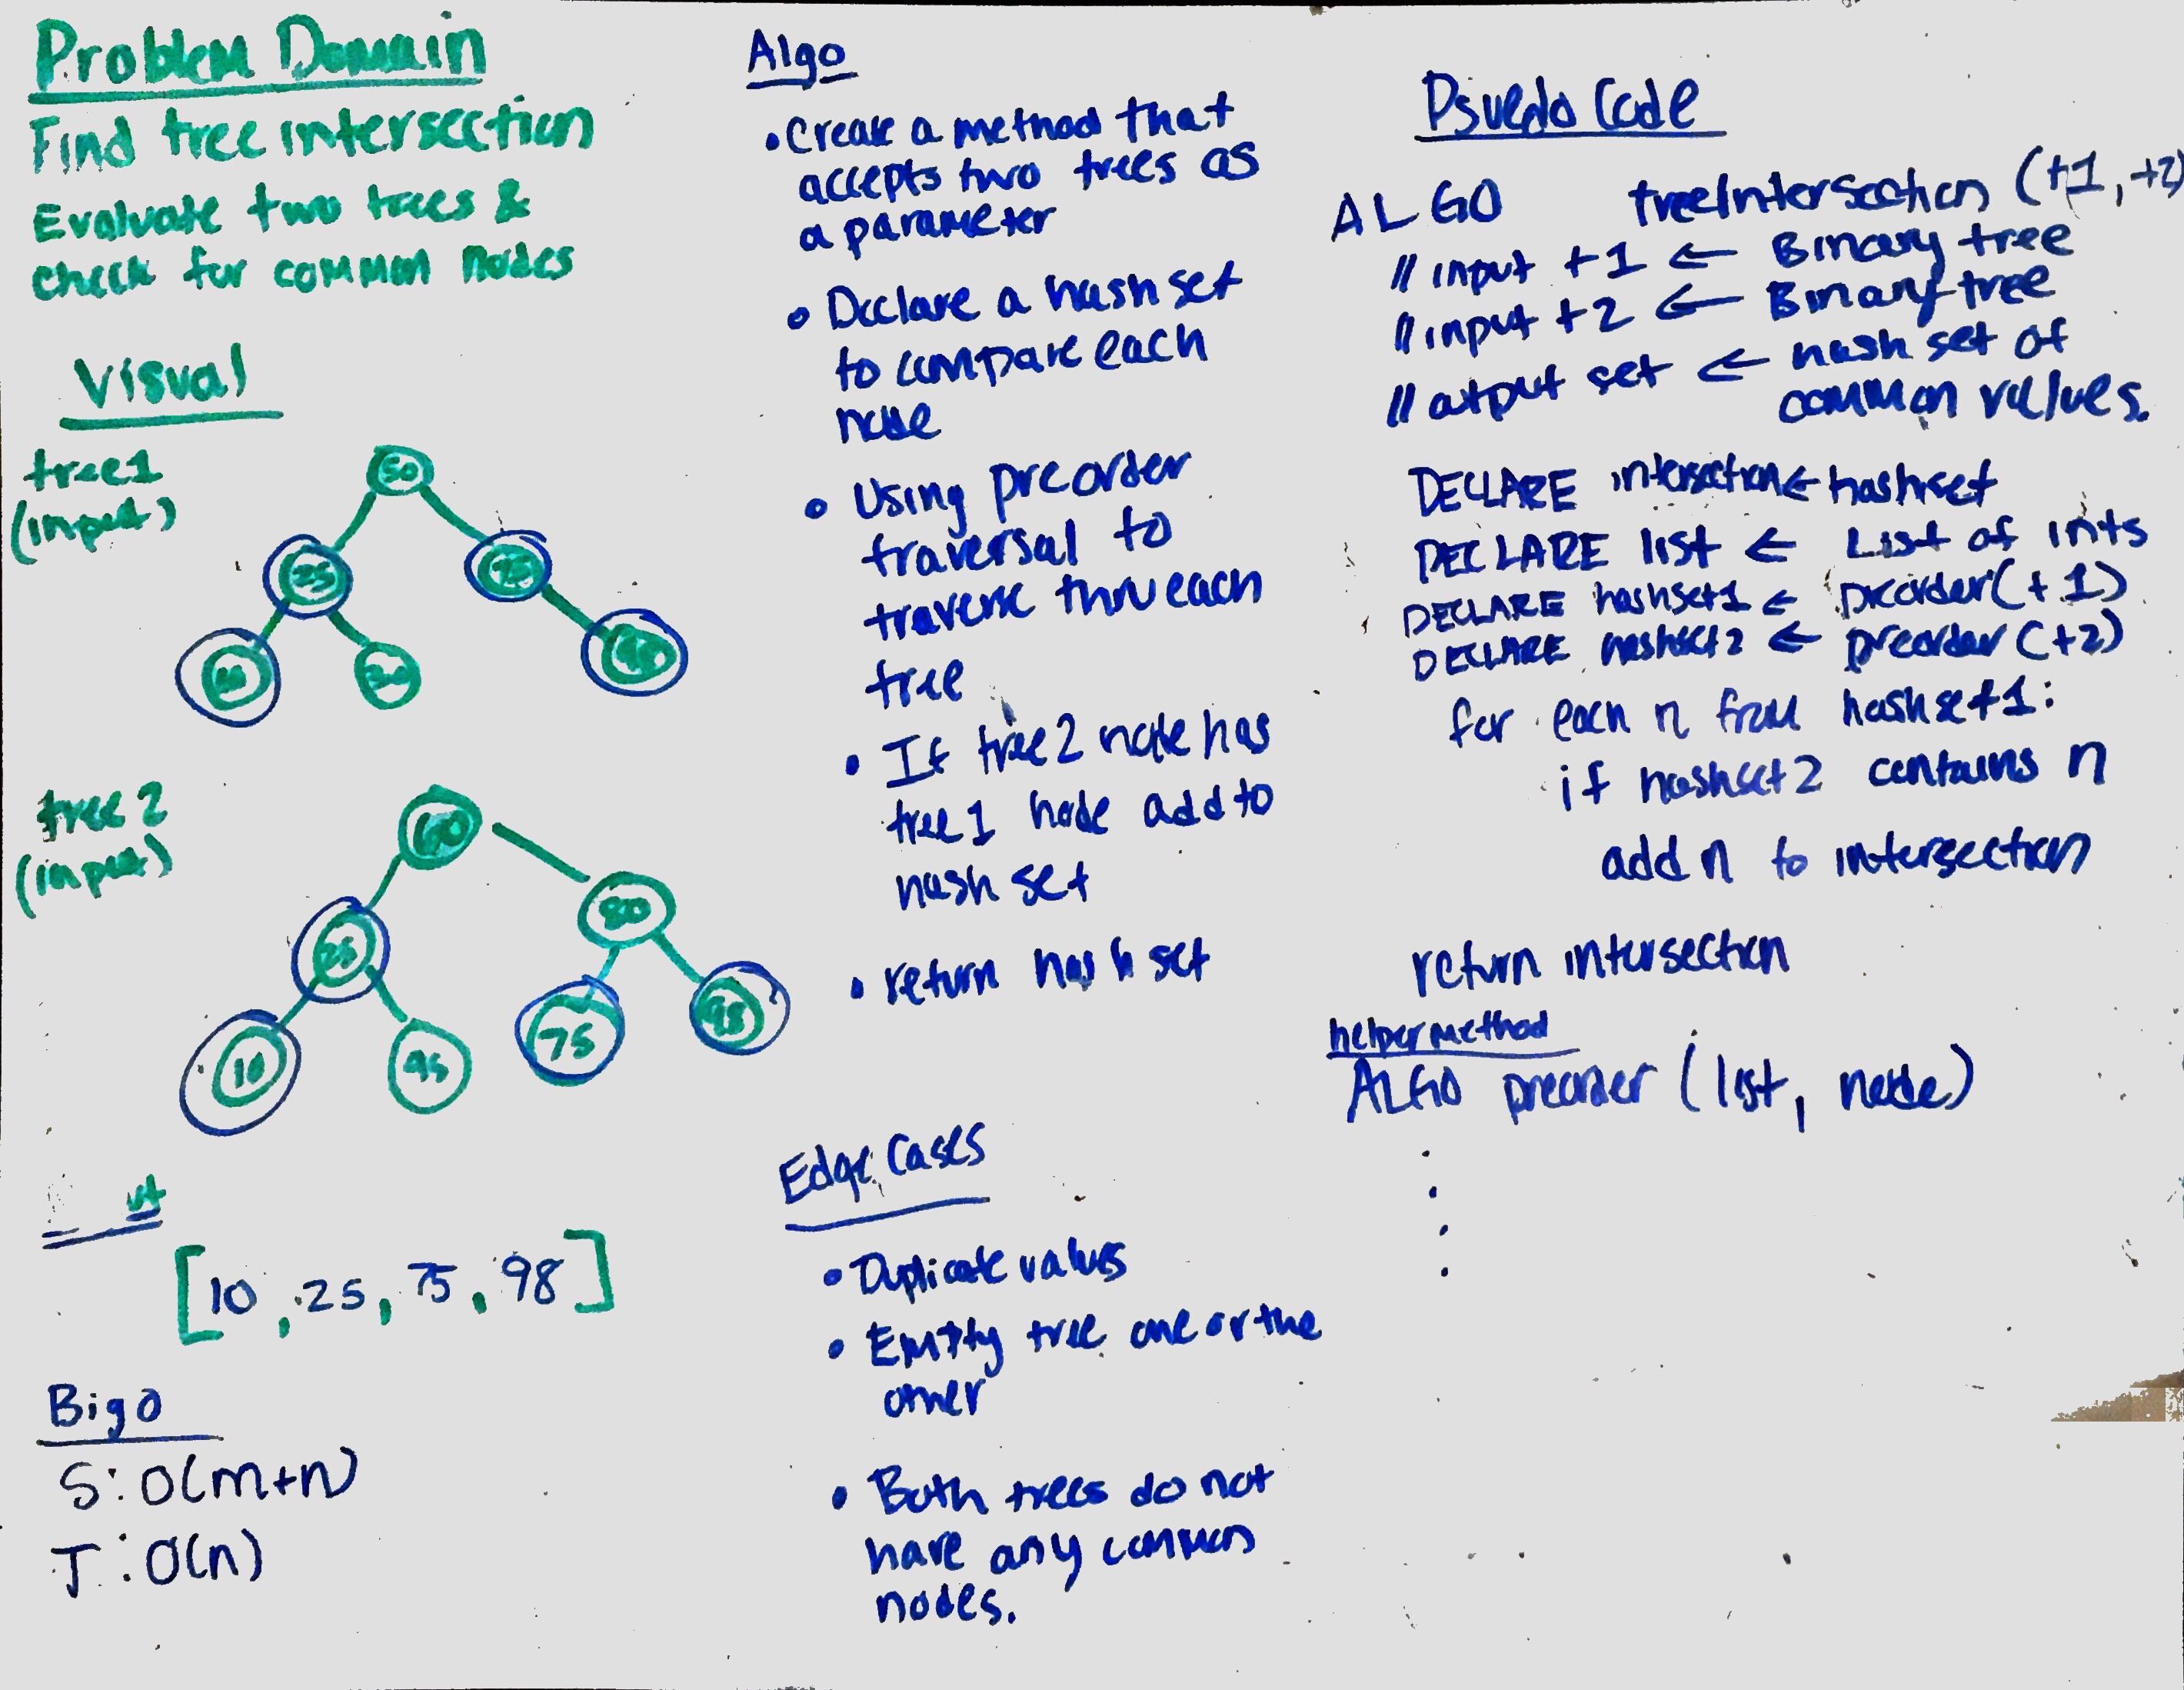 Problem Domain
Find tree intersection
Evaluate two trees &
check for common nodes
Visual
tree1
(input)
50
25
75
30
tree 2
(input)
60
25
80
10
45
75
98
[10, 25, 75, 98]
Big O
S: O(m+n)
T: O(n)
Algo
• Create a method that
accepts two trees as
a parameter
• Declare a hash set
to compare each
node
• Using preorder
traversal to
traverse thru each
tree
• If tree2 node has
tree1 node add to
hash set
• return hash set
Edge Cases
• Duplicate values
• Empty tree one or the
other
• Both trees do not
have any common
nodes.
Psuedo Code
ALGO treeIntersection (t1, t2)
// input t1 ← Binary tree
// input t2 ← Binary tree
// output set ← hash set of
common values.
DECLARE intersection ← hashset
DECLARE list ← List of ints
DECLARE hashset1 ← preorder(t1)
DECLARE hashset2 ← preorder(t2)
for each n from hashset1:
if hashset2 contains n
add n to intersection
return intersection
helper method
ALGO preorder (list, node)